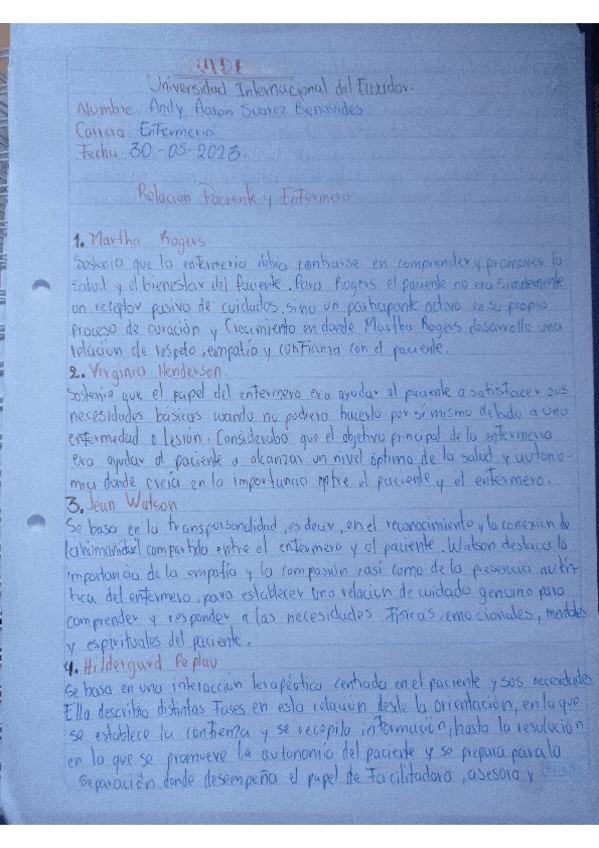 UIDE
Universidad Internacional del Ecuador.
Nombre: Andy Aaron Suarez Benavides
Carrera: Enfermeria
Fecha: 30-05-2023.
Relacion Paciente y Enfermero
1. Martha Rogers.
Sostenia que la enfermeria debia centrarse en comprender y promover la
salud y el bienestar del Paciente. Para Rogers el paciente no era simplemente
un receptor pasivo de cuidados, sino un participante activo en su propio
proceso de curación y Crecimiento en donde Martha Rogers desarrollo una
relacion de respeto, empatía y confianza con el paciente.
2. Virginia Henderson.
Sostenia que el papel del enfermero era ayudar al paciente a satisfacer sus
necesidades básicas cuando no pudiera hacerlo por si mismo debido a una
enfermedad o lesión. Consideraba que el objetivo principal de la enfermeria
era ayudar al paciente a alcanzar un nivel óptimo de la salud y autono-
mia donde creía en la importancia entre el paciente y el enfermero.
3. Jean Watson
Se basa en la transpersonalidad, es decir, en el reconocimiento y la conexion de
la humanidad compartida entre el enfermero y el paciente. Watson destaca la
importancia de la empatía y la compasión, asi como de la presencia autén-
tica del enfermero, para establecer una relacion de cuidado genuino para
comprender y responder a las necesidades Físicas, emocionales, mentales
y espirituales del paciente.
4. Hildergard Peplau
Se basa en una interaccion terapéutica centrada en el paciente y sus necesidades
Ella describio distintas Fases en esta relacion desde la orientación, en la que
se establece la confianza y se recopila información, hasta la resolución
en la que se promueve la autonomia del paciente y se prepara para la
separación donde desempeña el papel de Facilitadora, asesora y